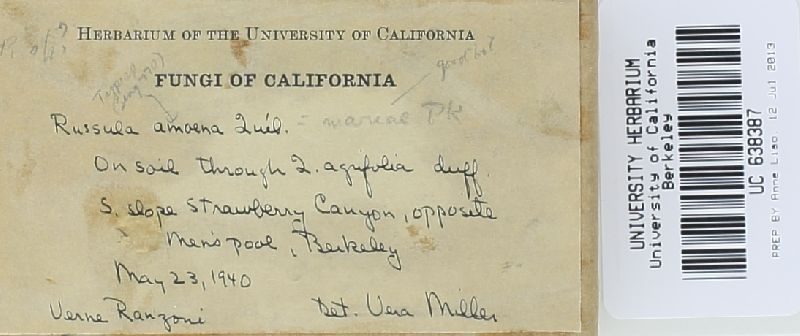 HERBARIUM OF THE UNIVERSITY OF CALIFORNIA
good but
FUNGI OF CALIFORNIA
Russula amoena Quél. = mareae PK
On soil through Q. agrifolia duff.
S. slope Strawberry Canyon, opposite
Men's pool, Berkeley
May 23, 1940
Verne Ranzoni Det. Vera Miller
UNIVERSITY HERBARIUM
University of California
Berkeley
UC 638387
PREP BY Anne Liao, 12 Jul 2013